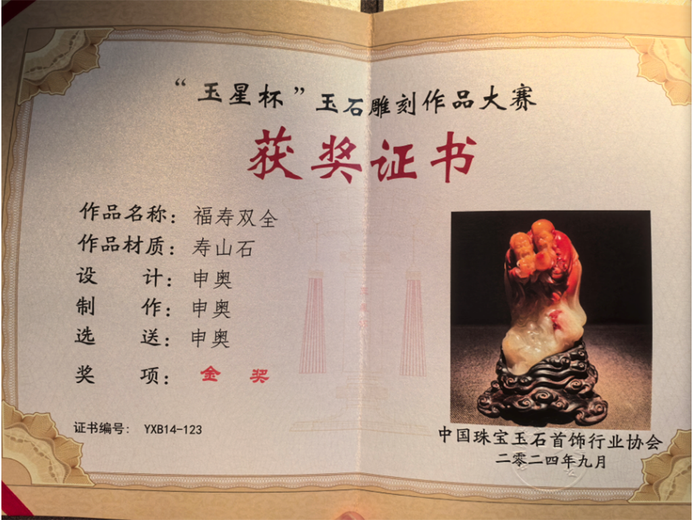 “玉星杯”玉石雕刻作品大赛
获奖证书
作品名称：福寿双全
作品材质：寿山石
设 计：申奥
制 作：申奥
选 送：申奥
奖 项：金 奖
证书编号： YXB14-123
中国珠宝玉石首饰行业协会
二零二四年九月